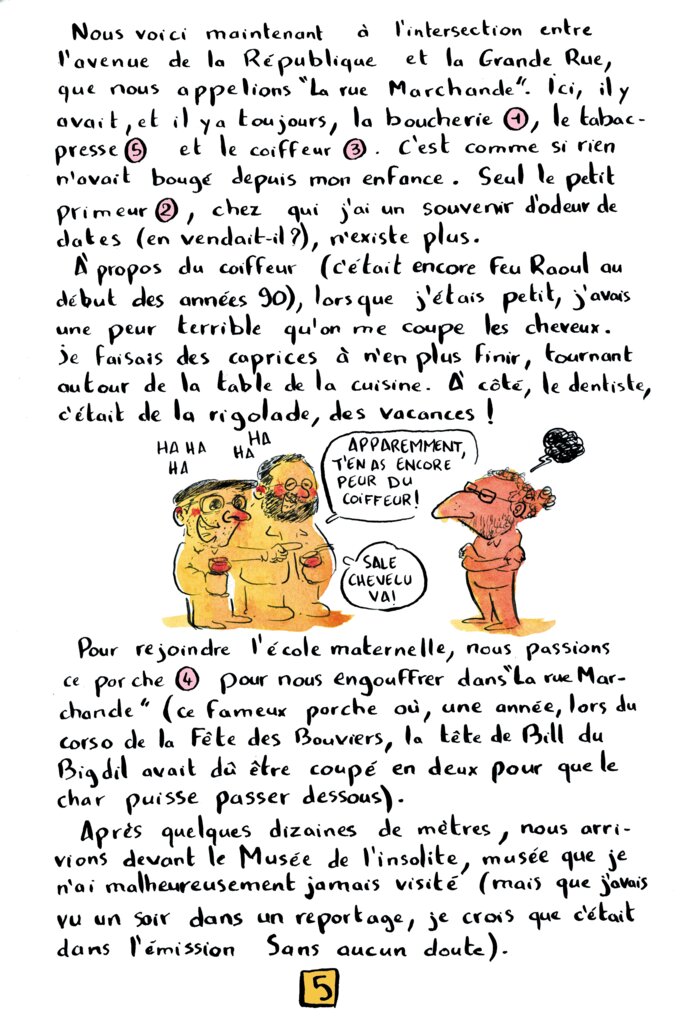 Nous voici maintenant à l'intersection entre
l'avenue de la République et la Grande Rue,
que nous appelions "La rue Marchande". Ici, il y
avait, et il y a toujours, la boucherie 1, le tabac-
presse 5 et le coiffeur 3. C'est comme si rien
n'avait bougé depuis mon enfance. Seul le petit
primeur 2, chez qui j'ai un souvenir d'odeur de
dates (en vendait-il?), n'existe plus.
À propos du coiffeur (c'était encore feu Raoul au
début des années 90), lorsque j'étais petit, j'avais
une peur terrible qu'on me coupe les cheveux.
Je faisais des caprices à n'en plus finir, tournant
autour de la table de la cuisine. À côté, le dentiste,
c'était de la rigolade, des vacances !
HA HA
HA
HA
HA
HA
APPAREMMENT,
T'EN AS ENCORE
PEUR DU
COIFFEUR!
SALE
CHEVELU
VA!
Pour rejoindre l'école maternelle, nous passions
ce porche 4 pour nous engouffrer dans "La rue Mar-
chande" (ce fameux porche où, une année, lors du
corso de la Fête des Bouviers, la tête de Bill du
Bigdil avait dû être coupé en deux pour que le
char puisse passer dessous).
Après quelques dizaines de mètres, nous arri-
vions devant le Musée de l'insolite, musée que je
n'ai malheureusement jamais visité (mais que j'avais
vu un soir dans un reportage, je crois que c'était
dans l'émission Sans aucun doute).
5